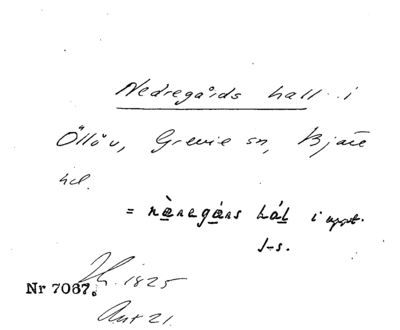 Nedregårds hall i
Öllöv, Grevie sn, Bjäre
hd.
= nàregárs hál i uppt.
1-s.
Nr 7067. 1825
Ant 21.